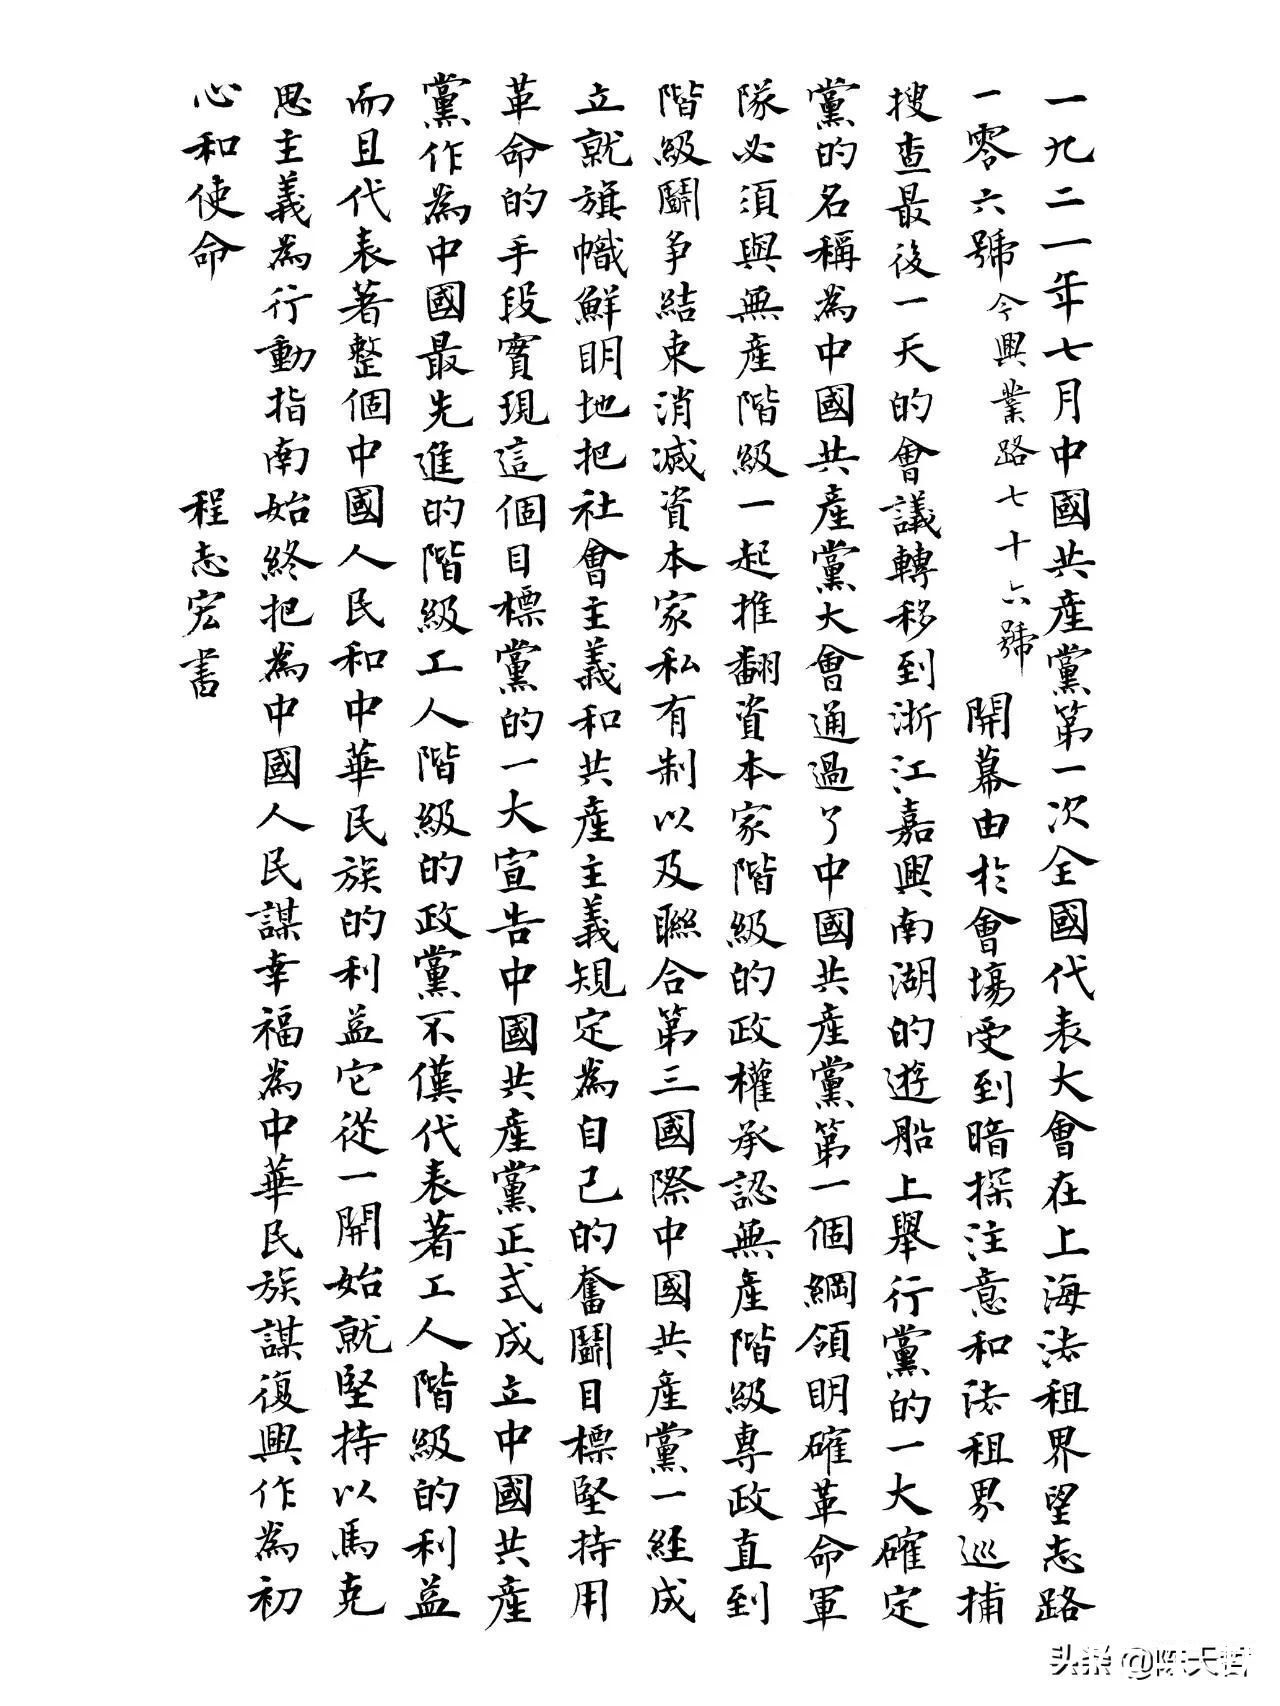 一九二一年七月中國共産黨第一次全國代表大會在上海法租界望志路
一零六號今興業路七十六號開幕由於會場受到暗探注意和法租界巡捕
搜查最後一天的會議轉移到浙江嘉興南湖的遊船上舉行黨的一大確定
黨的名稱為中國共産黨大會通過了中國共産黨第一個綱領明確革命軍
隊必須與無産階級一起推翻資本家階級的政權承認無産階級專政直到
階級鬭爭結束消滅資本家私有制以及聯合第三國際中國共産黨一經成
立就旗幟鮮明地把社會主義和共産主義規定為自己的奮鬭目標堅持用
革命的手段實現這個目標黨的一大宣告中國共産黨正式成立中國共産
黨作為中國最先進的階級工人階級的政黨不僅代表著工人階級的利益
而且代表著整個中國人民和中華民族的利益它從一開始就堅持以馬克
思主義為行動指南始終把為中國人民謀幸福為中華民族謀復興作為初
心和使命 程志宏書
头条 @陈天哲